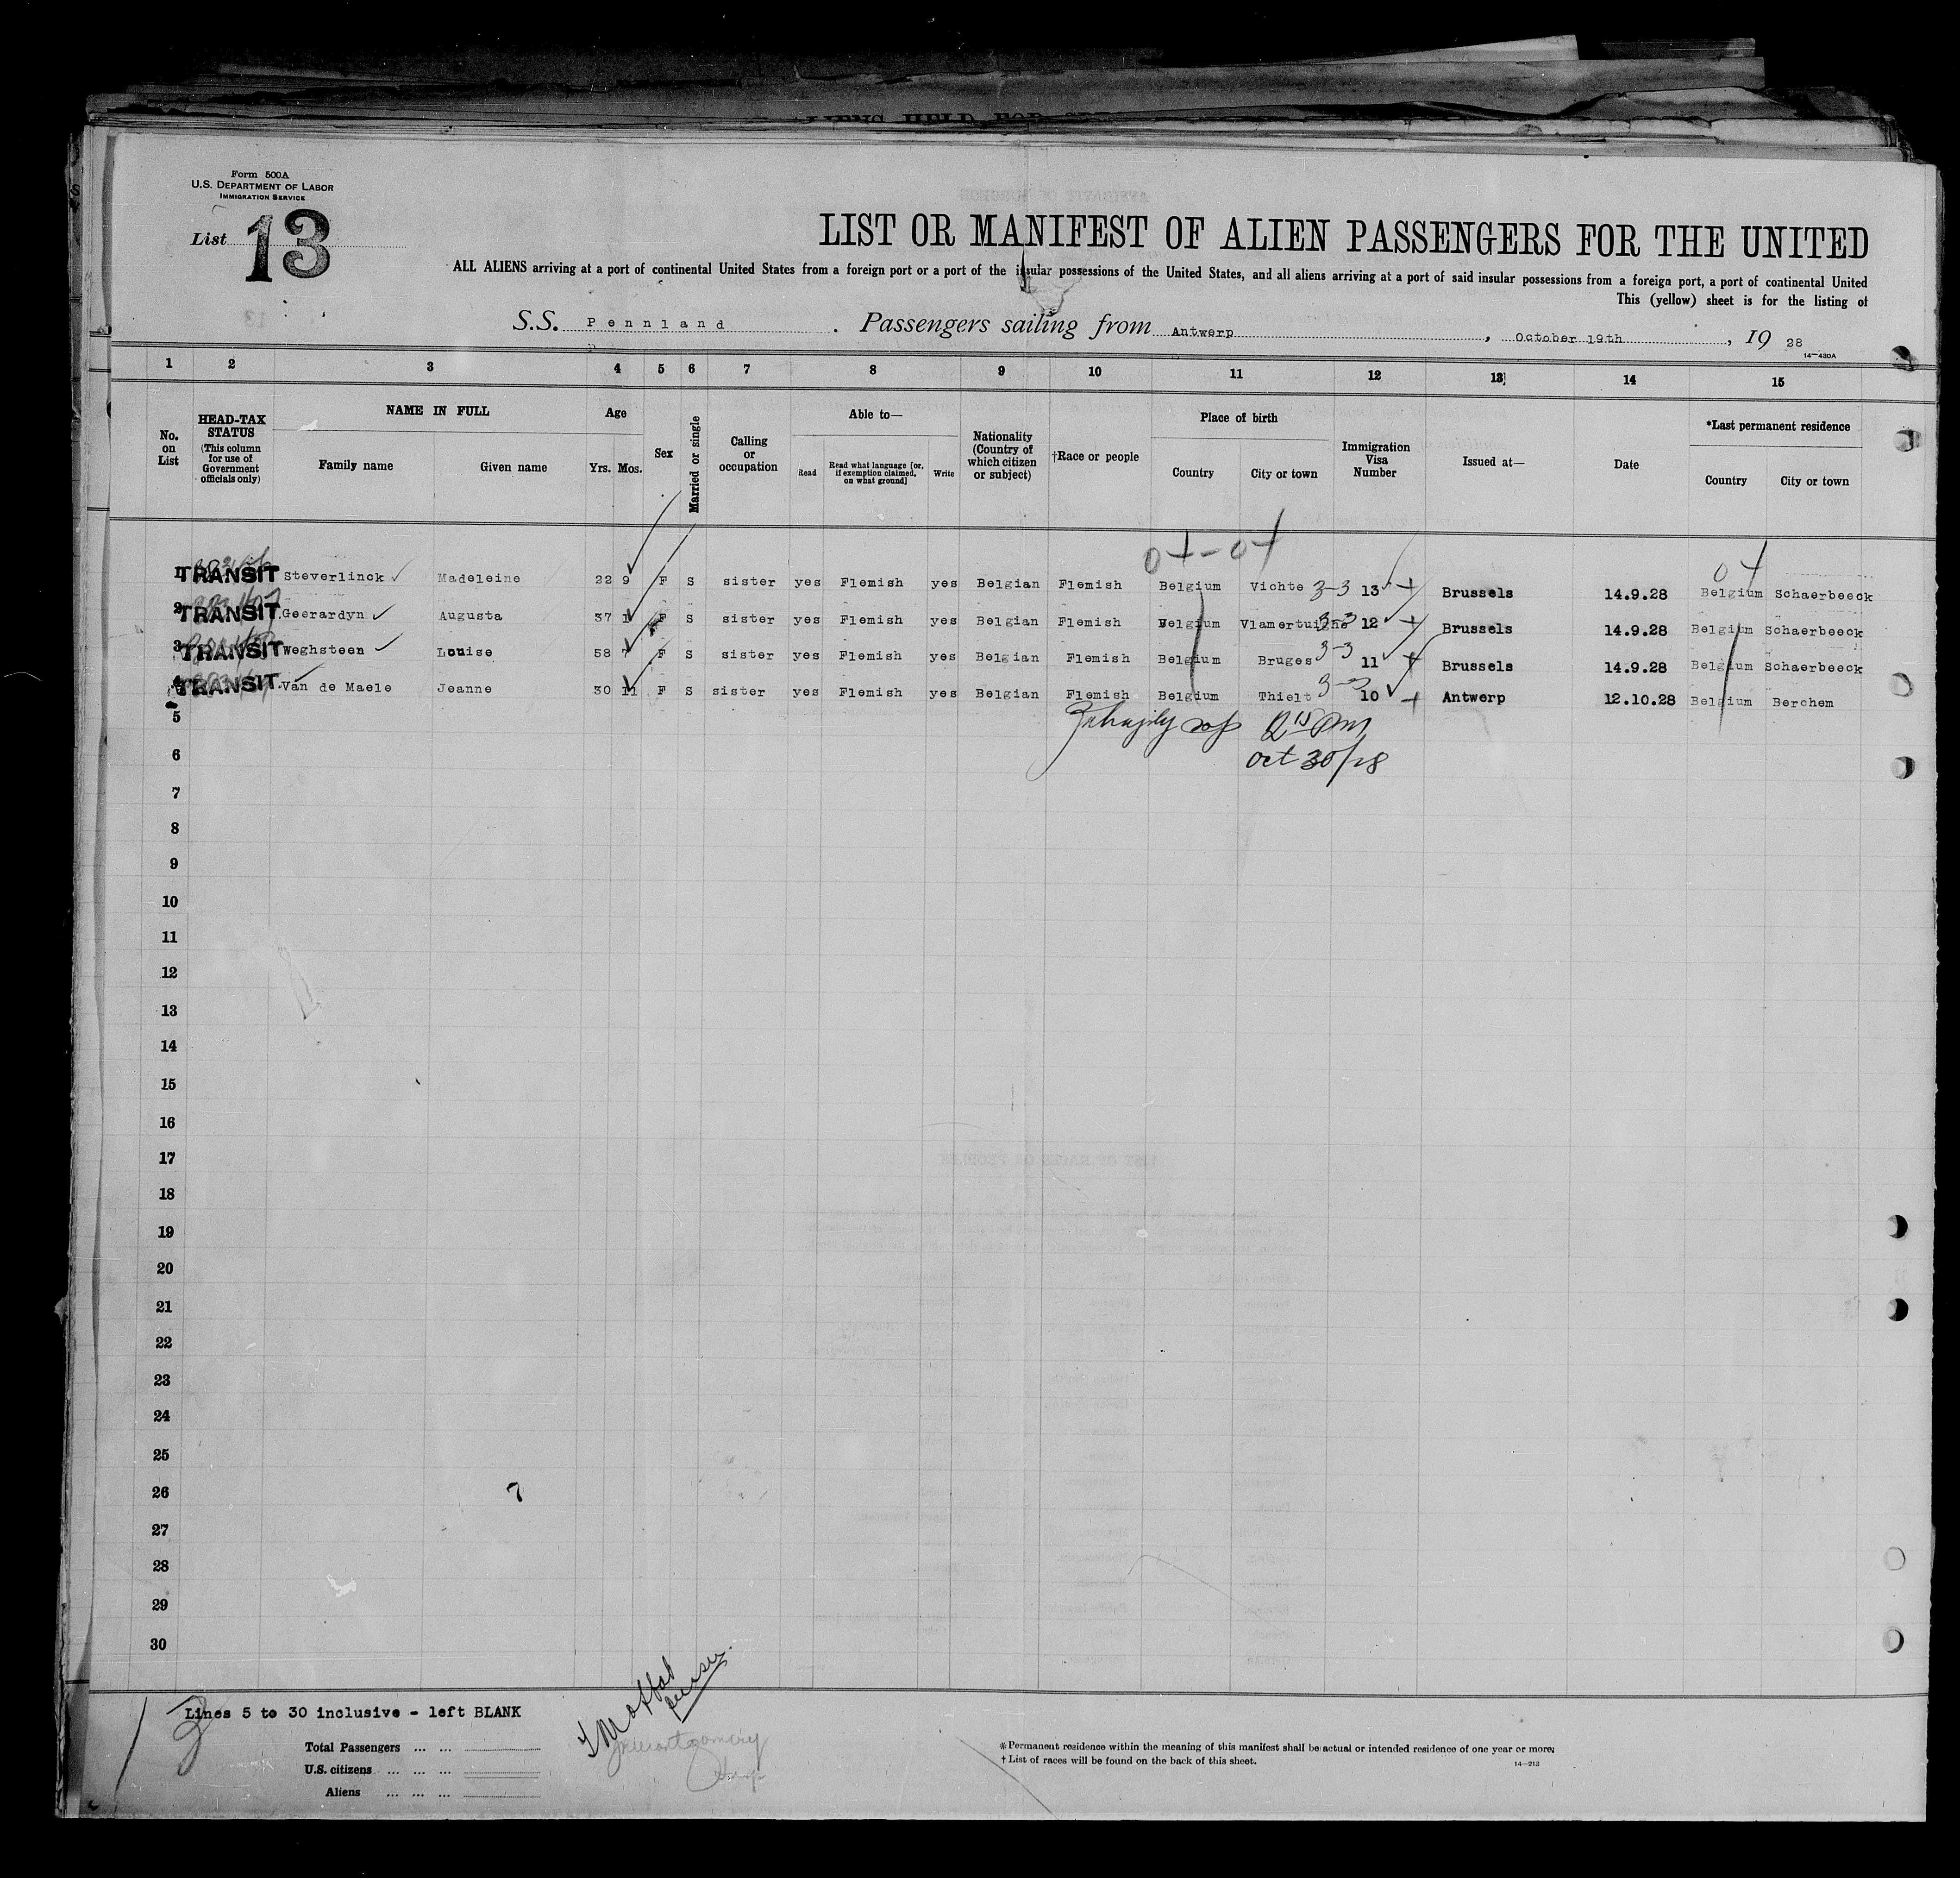 Form 500A
U.S. DEPARTMENT OF LABOR
IMMIGRATION SERVICE
List 13
LIST OR MANIFEST OF ALIEN PASSENGERS FOR THE UNITED
ALL ALIENS arriving at a port of continental United States from a foreign port or a port of the insular possessions of the United States, and all aliens arriving at a port of said insular possessions from a foreign port, a port of continental United
This (yellow) sheet is for the listing of
S.S. Pennland . Passengers sailing from Antwerp , October 19th , 19 28
14-430A
1 2 3 4 5 6 7 8 9 10 11 12 13 14 15
No. on List
HEAD-TAX STATUS
(This column for use of Government officials only)
NAME IN FULL
Family name Given name
Age
Yrs. Mos.
Sex
Married or single
Calling or occupation
Able to—
Read
Read what language [or, if exemption claimed, on what ground]
Write
Nationality (Country of which citizen or subject)
†Race or people
Place of birth
Country City or town
Immigration Visa Number
Issued at—
Date
*Last permanent residence
Country City or town
1 TRANSIT Steverlinck Madeleine 22 9 F S sister yes Flemish yes Belgian Flemish Belgium Vichte 3-3 13 Brussels 14.9.28 Belgium Schaerbeeck
2 TRANSIT Geerardyn Augusta 37 1 F S sister yes Flemish yes Belgian Flemish Belgium 3-3 12 Brussels 14.9.28 Belgium Schaerbeeck
3 TRANSIT Weghsteen Louise 58 7 F S sister yes Flemish yes Belgian Flemish Belgium Bruges 3-3 11 Brussels 14.9.28 Belgium Schaerbeeck
4 TRANSIT Van de Maele Jeanne 30 11 F S sister yes Flemish yes Belgian Flemish Belgium Thielt 3-3 10 Antwerp 12.10.28 Belgium Berchem
5
6 Oct 30/28
7
8
9
10
11
12
13
14
15
16
17
18
19
20
21
22
23
24
25
26
27
28
29
30
Lines 5 to 30 inclusive - left BLANK
Total Passengers ... ...
U.S. citizens ... ... ...
Aliens ... ... ...
Moffat
purser
Montgomery
*Permanent residence within the meaning of this manifest shall be actual or intended residence of one year or more.
†List of races will be found on the back of this sheet.
14-213